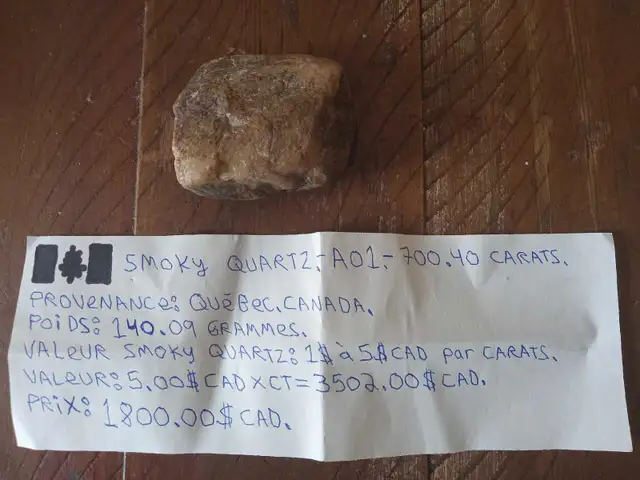 SMOKY QUARTZ:-A01.-700.40 CARATS.
PROVENANCE: QUÉBEC.CANADA.
POIDS: 140.09 GRAMMES.
VALEUR SMOKY QUARTZ: 1$ à 5$ CAD par CARATS.
VALEUR: 5.00$ CAD X CT = 3502.00$ CAD.
PRIX: 1800.00$ CAD.